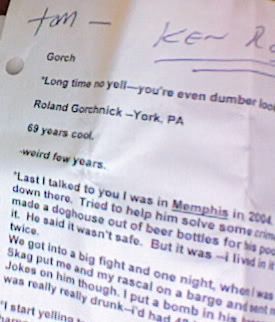 tom - KEN R
Gorch
"Long time no yell—you're even dumber loo
Roland Gorchnick –York, PA
69 years cool.
-weird few years.
"Last I talked to you I was in Memphis in 2004
down there. Tried to help him solve some crim
made a doghouse out of beer bottles for his poo
it. He said it wasn't safe. But it was –I lived in it
twice.
We got into a big fight and one night, when I was
Skag put me and my rascal on a barge and sent
Jokes on him though. I put a bomb in his
was really really drunk—i'd had
"I start yelling